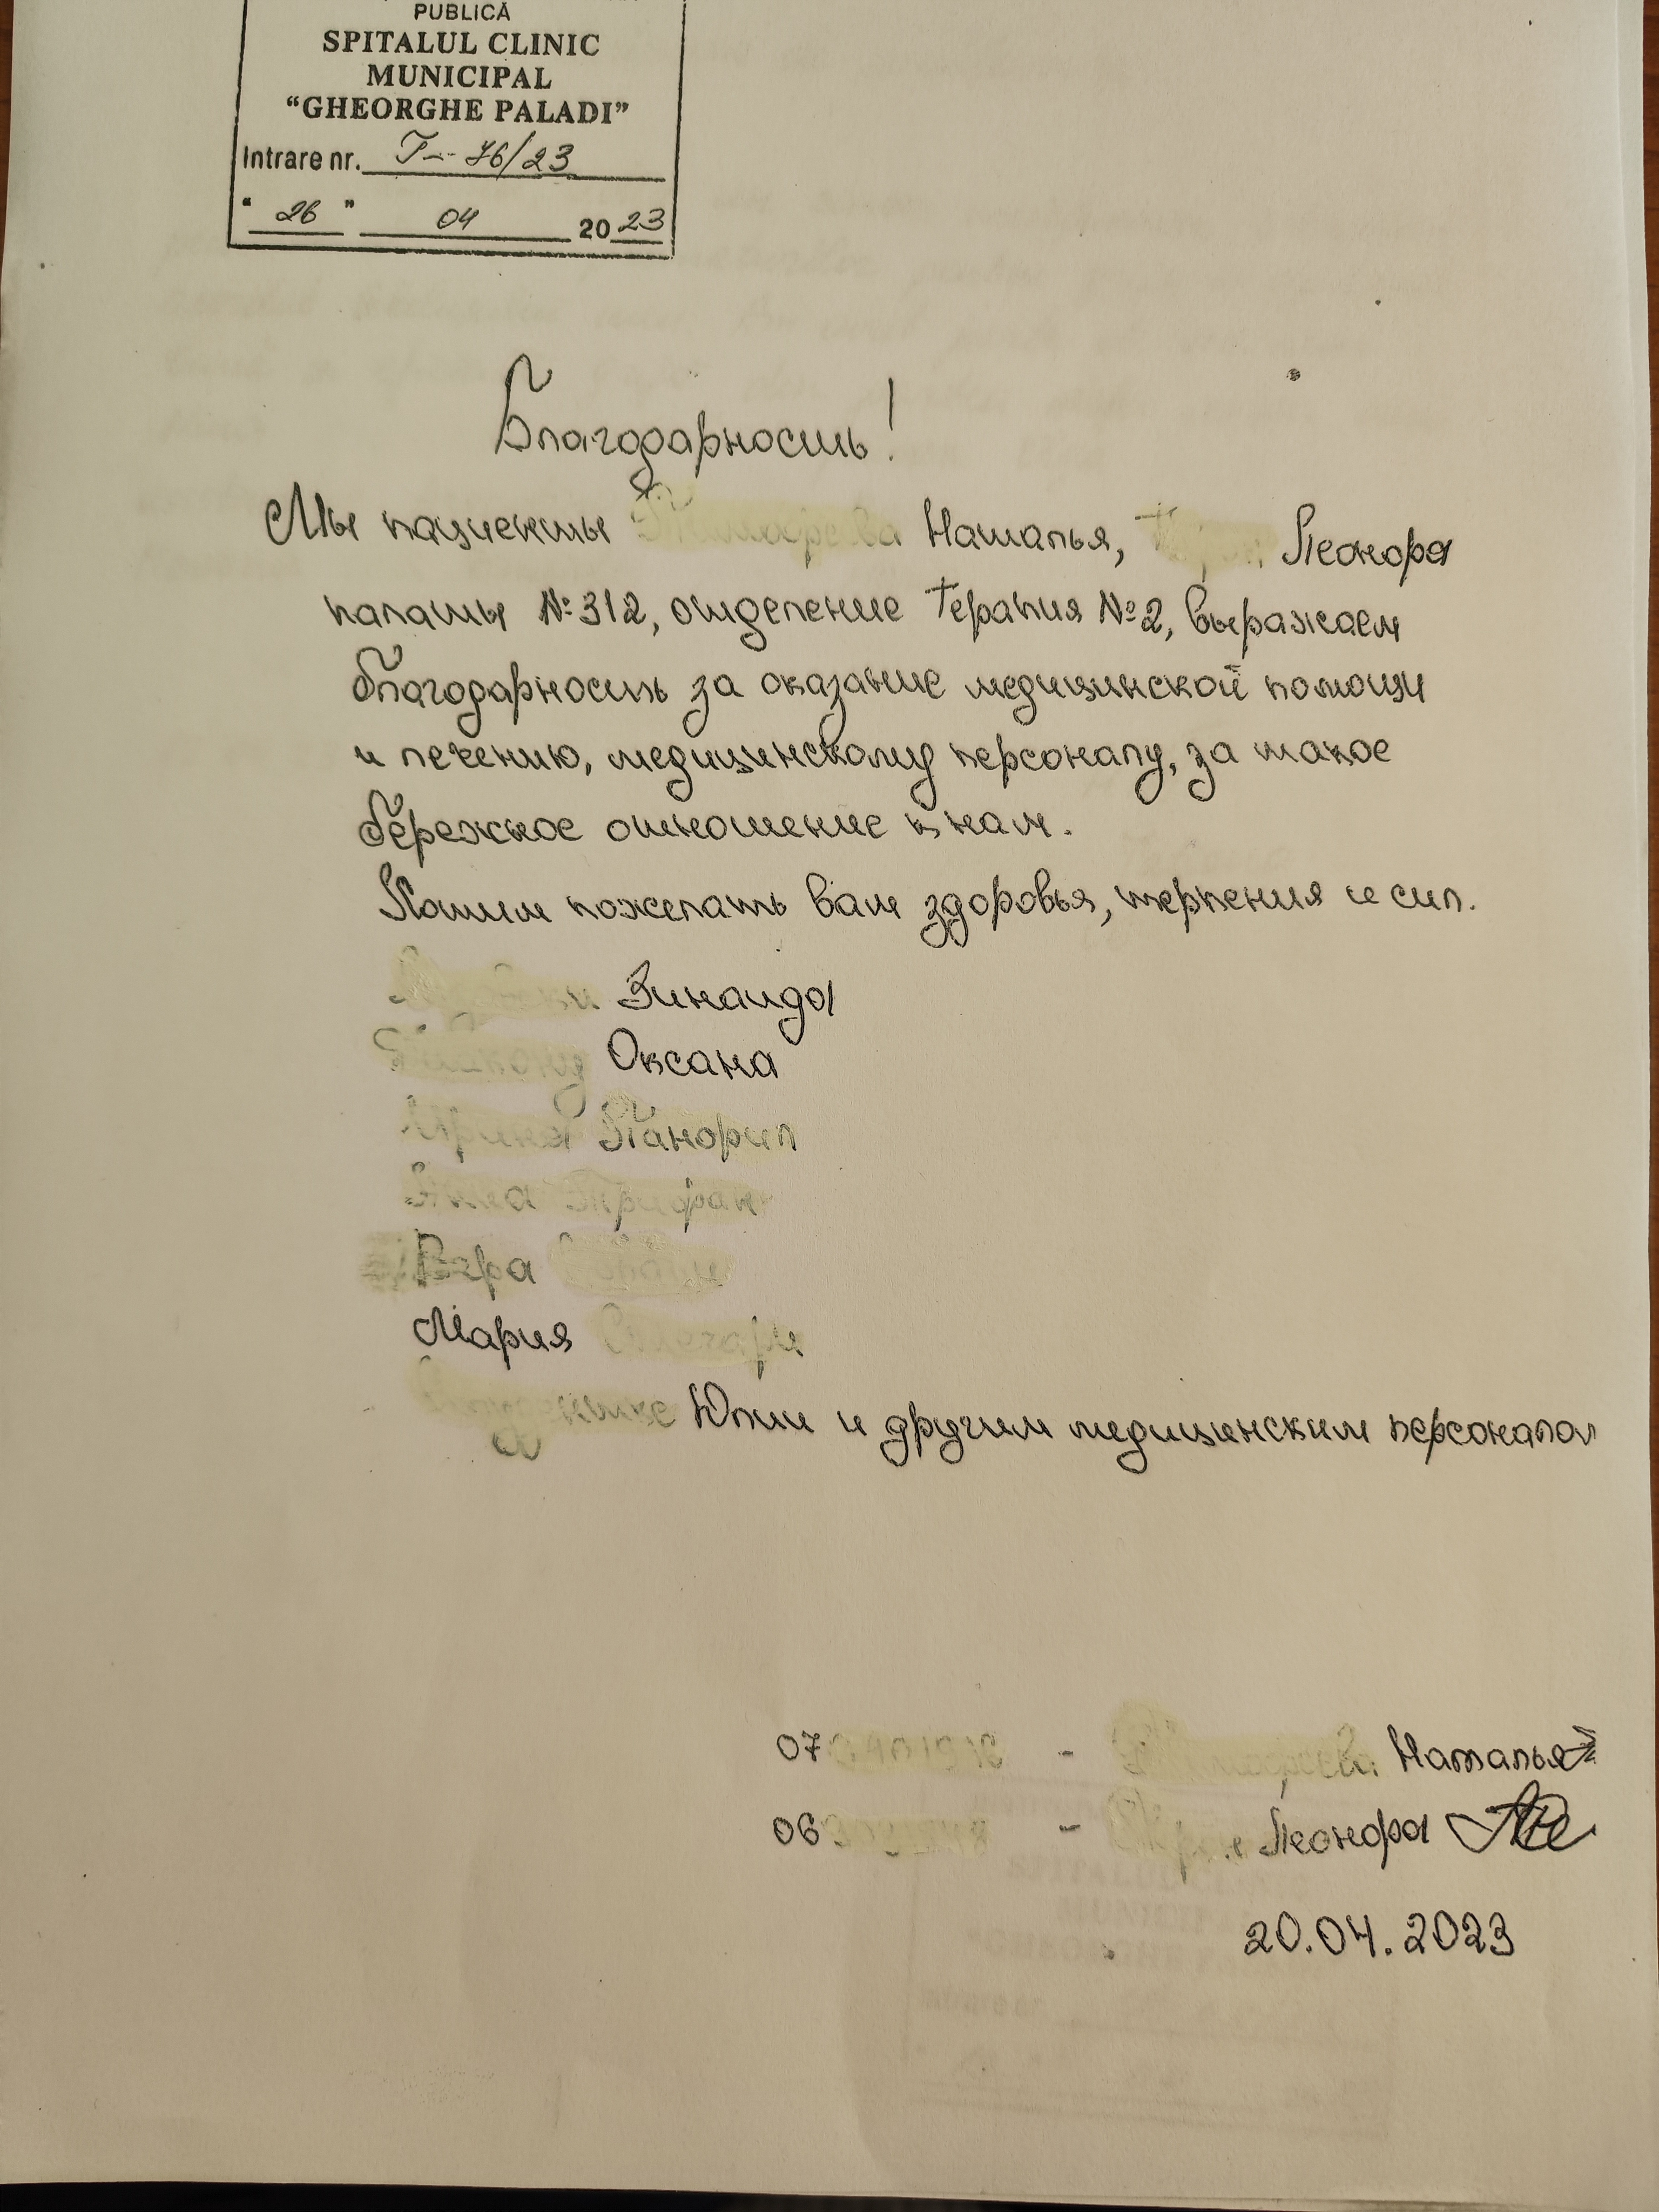 PUBLICĂ
SPITALUL CLINIC
MUNICIPAL
“GHEORGHE PALADI”
Intrare nr. T-76/23
“ 26 ” 04 2023
Благодарность!
Мы пациенты Наталья, Леонора
палаты №312, отделение Терапия №2, выражаем
благодарность за оказание медицинской помощи
и лечению, медицинскому персоналу, за такое
бережное отношение к нам.
Хотим пожелать вам здоровья, терпения и сил.
Зинаида
Оксана
Вера
Мария
Юлии и другим медицинским персоналом
07 - Наталья
06 - Леонора
20.04.2023